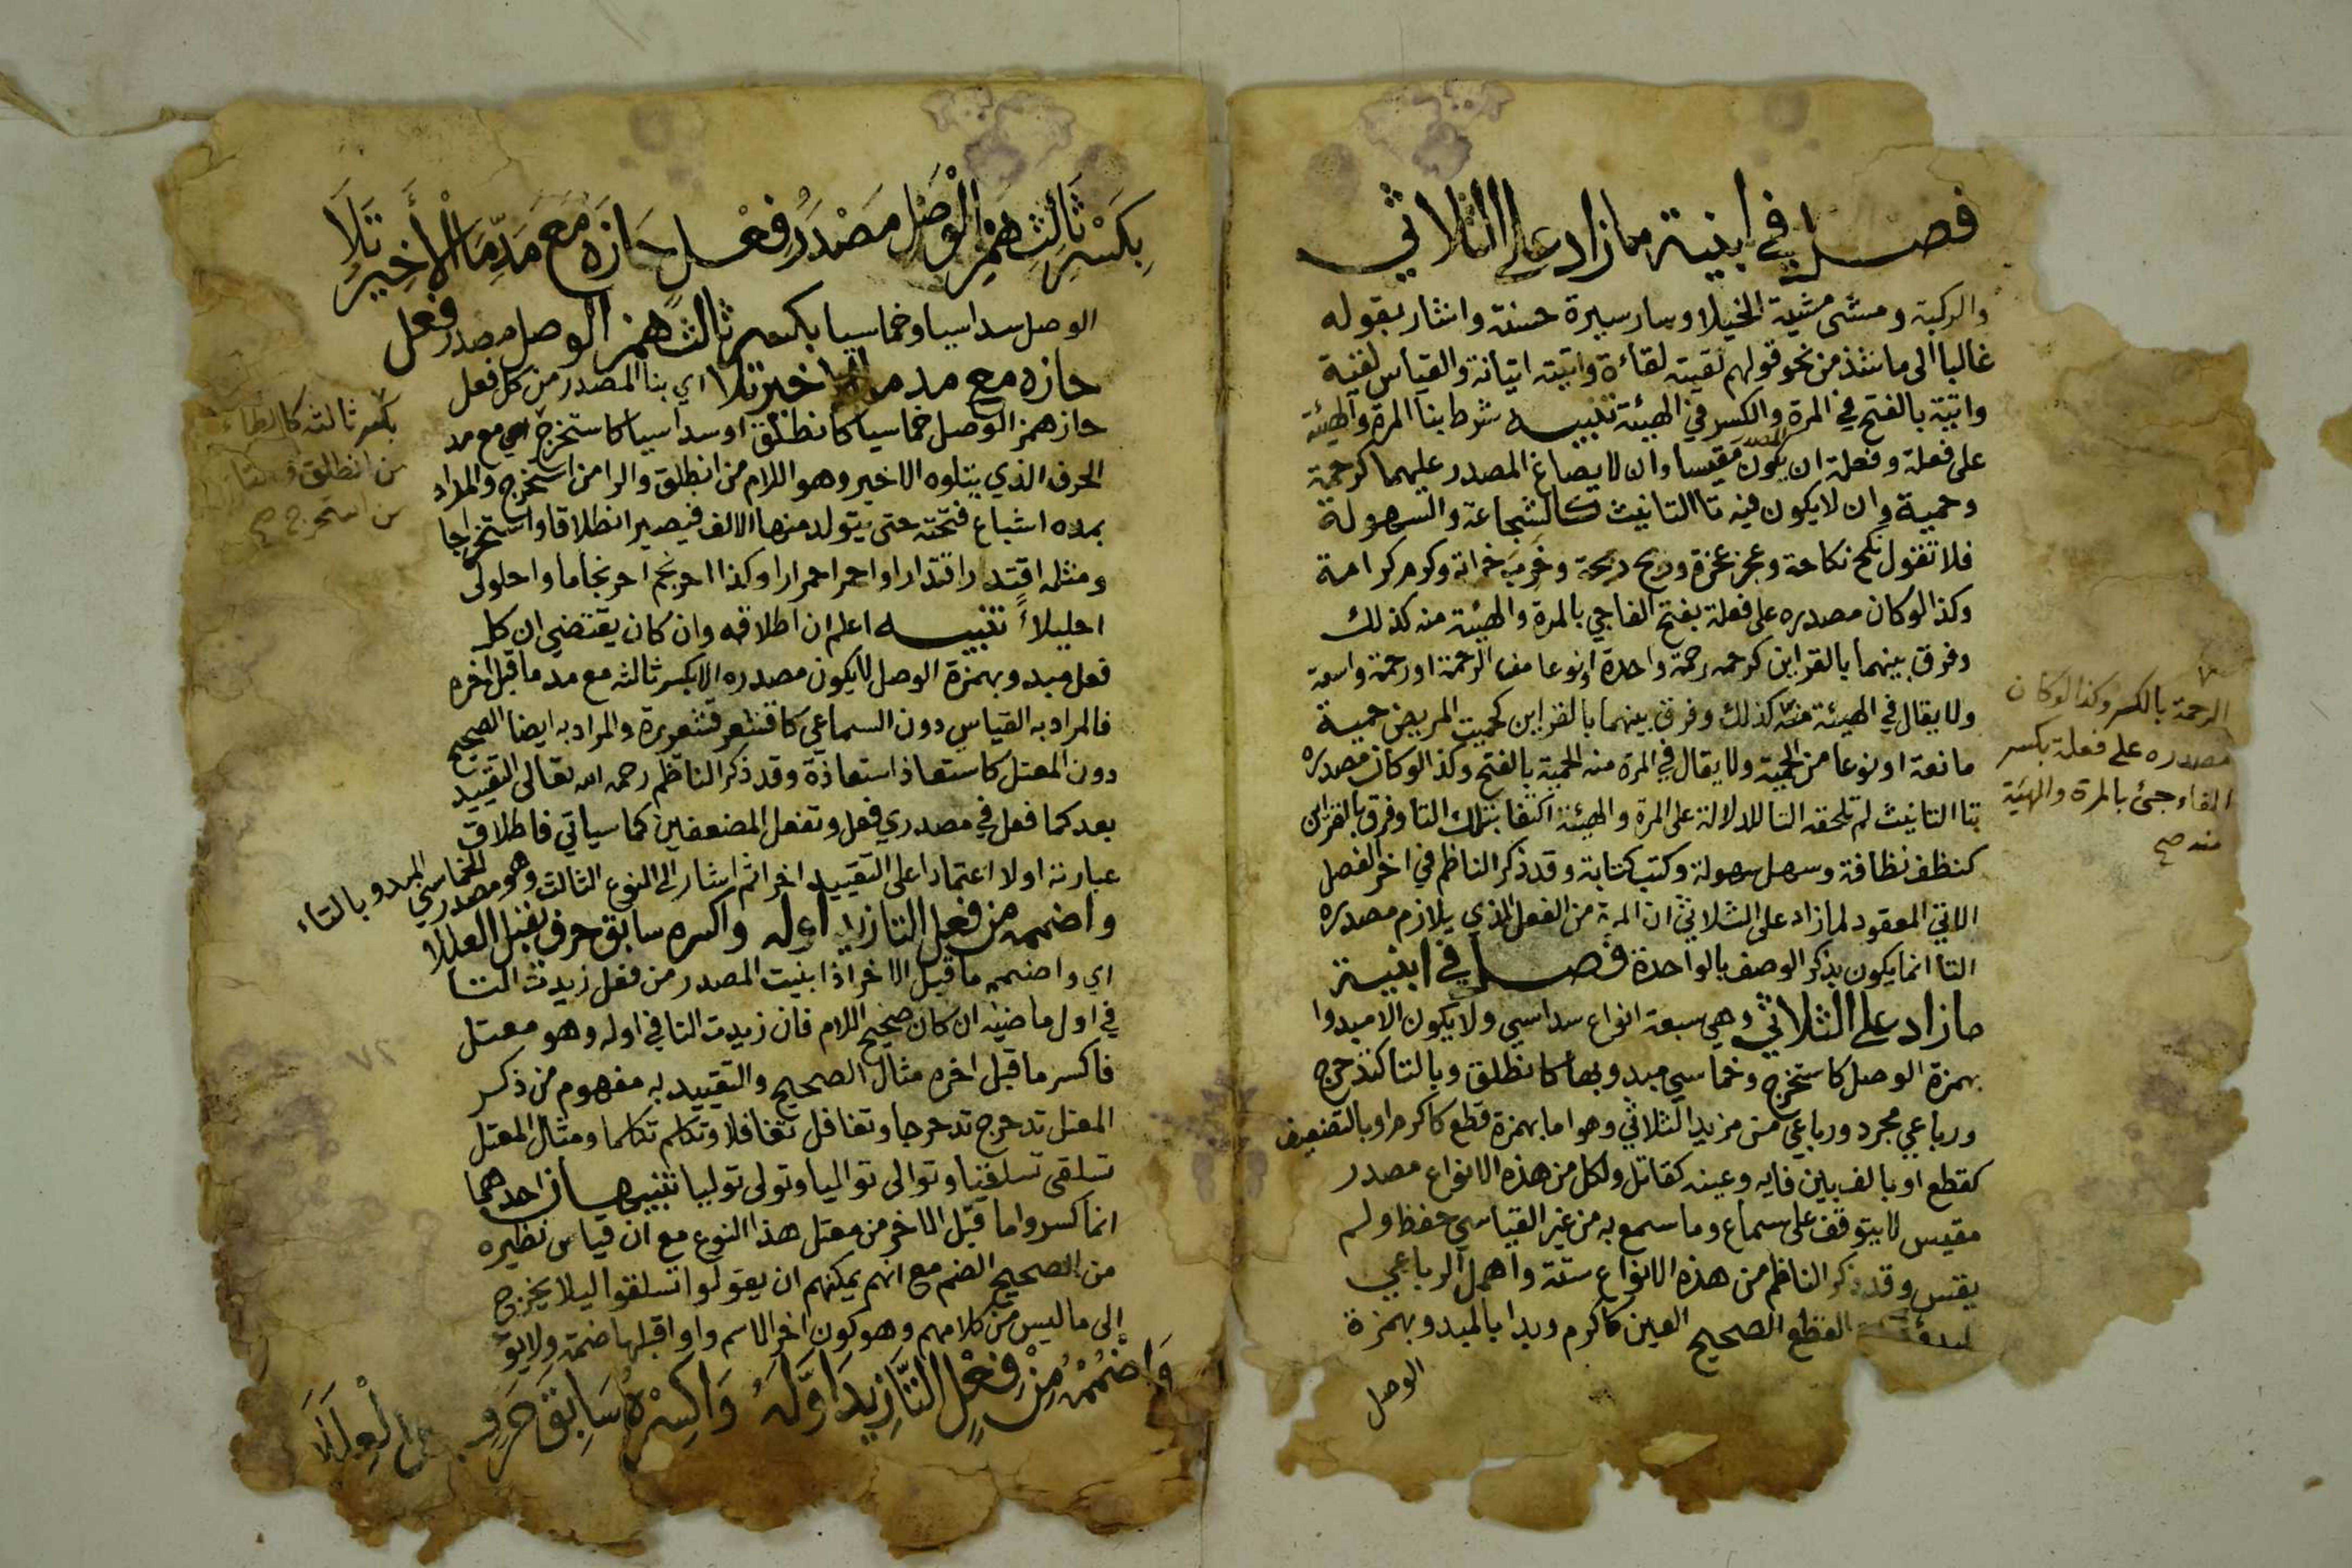 فصل في ابنية مازاد على الثلاثي
والركبة ومشى مشية الخيلا وسار سيرة حسنة واشار بقوله
غالبا الى ماشذ من نحو قولهم لقيته لقاءة واتيته اتيانة والقياس لقية
واتية بالفتح في المرة والكسر في الهيئة تنبيه شرط بنا المرة والهيئة
على فعلة وفعلة ان يكون مقيسا وان لا يصاغ المصدر عليهما كرحمة
وحمية وان لا يكون فيه تا التانيث كالشجاعة والسهولة
فلا تقول نكح نكاحة وكرم كرامة
وكذا لو كان مصدره على فعلة بفتح الفا جي بالمرة والهيئة منه كذلك
وفرق بينهما بالقراين كرحمه رحمة واحدة او نوعا من الرحمة او رحمة واسعة
ولا يقال في الهيئة منه كذلك وفرق بينهما بالقراين كحميت المريض حمية
مانعة او نوعا من الحمية ولا يقال في المرة منه الحمية بالفتح وكذا لو كان مصدره
بتا التانيث لم تلحقه التا للدلالة على المرة والهيئة اكتفا بتلك التا وفرق بالقراين
كنظف نظافة وسهل سهولة وكتب كتابة وقد ذكر الناظم في اخر الفصل
الاتي المعقود لما زاد على الثلاثي ان المرة من الفعل الذي يلازم مصدره
التا انما يكون بذكر الوصف بالواحدة فصل في ابنية
مازاد على الثلاثي وهي سبعة انواع سداسي ولا يكون الا مبدوا
بهمزة الوصل كاستخرج وخماسي مبدو بها كانطلق وبالتا كتدحرج
ورباعي مجرد ورباعي من مزيد الثلاثي وهو اما بهمزة قطع كاكرم او بالتضعيف
كقطع او بالف بين فايه وعينه كقاتل ولكل من هذه الانواع مصدر
مقيس لا يتوقف على سماع وما سمع به من غير القياسي حفظ ولم
يقس وقد ذكر الناظم من هذه الانواع ستة واهمل الرباعي
القطع الصحيح العين كاكرم وبدا بالمبدو بهمزة
الوصل
الرحمة بالكسر وكذا لو كان
مصدره على فعلة بكسر
الفاء جئ بالمرة والهيئة
منه صح
بِكَسْرِ ثَالِثِ هَمْزِ الْوَصْلِ مَصْدَرُ فِعْلٍ حَازَهُ مَعَ مَدِّ مَا الْأَخِيرُ تَلَا
الوصل سداسيا وخماسيا بكسر ثالث همز الوصل مصدر فعل
حازه مع مد ما الاخير تلا اي بنا المصدر من كل فعل
حاز همز الوصل خماسيا كانطلق او سداسيا كاستخرج اي مع مد
الحرف الذي يتلوه الاخير وهو اللام من انطلق والرا من استخرج والمراد
بمده اشباع فتحته حتى يتولد منها الالف فيصير انطلاقا واستخراجا
ومثله اقتدر اقتدارا واحمر احمرارا وكذا احرنجم احرنجاما واحلولى
احليلاءً تنبيه اعلم ان اطلاقه وان كان يقتضي ان كل
فعل مبدو بهمزة الوصل لا يكون مصدره الا بكسر ثالثه مع مد ما قبل اخره
فالمراد به القياس دون السماعي كاقشعر قشعريرة والمراد به ايضا الصحيح
دون المعتل كاستعاذ استعاذة وقد ذكر الناظم رحمه الله تعالى التقييد
بعد كما فعل في مصدري فعل وتفعل المضعفين كما سياتي فاطلاق
عبارته اولا اعتمادا على التقييد اخرا ثم اشار الى النوع الثالث وهو مصدر الخماسي المبدو بالتاء
واضممه من فعل التا زيد اوله واكسره سابق حرف يقبل العللا
اي واضممه ما قبل الاخر اذا بنيت المصدر من فعل زيدت التا
في اول ماضيه ان كان صحيح اللام فان زيدت التا في اوله وهو معتل
فاكسر ما قبل اخره مثال الصحيح والتقييد به مفهوم من ذكر
المعتل تدحرج تدحرجا وتغافل تغافلا وتكلم تكلما ومثال المعتل
تسلقى تسلقيا وتوالى تواليا وتولى توليا تنبيهان احدهما
انما كسروا ما قبل الاخر من معتل هذا النوع مع ان قياس نظيره
من الصحيح الضم مع انهم يمكنهم ان يقولوا تسلقوا ليلا يخرج
الى ما ليس من كلامهم وهو كون اخر الاسم واوا قبلها ضمة ولا يو
وَاضْمُمْهُ مِنْ فِعْلٍ التَّا زِيدَ اَوَّلَهُ وَاكْسِرْهُ سَابِقَ حَرْفٍ الْعِلَلَا
بكسر ثالثه كالطاء
من انطلق والتا
من استخرج صح
٧٢